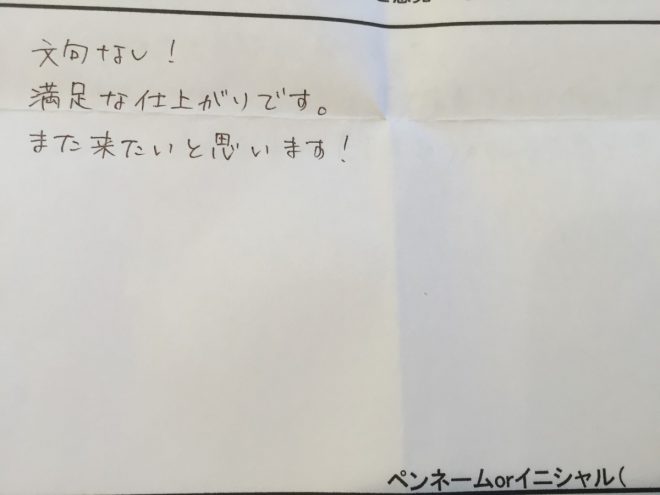 文句なし！
満足な仕上がりです。
また来たいと思います！
ペンネームorイニシャル(